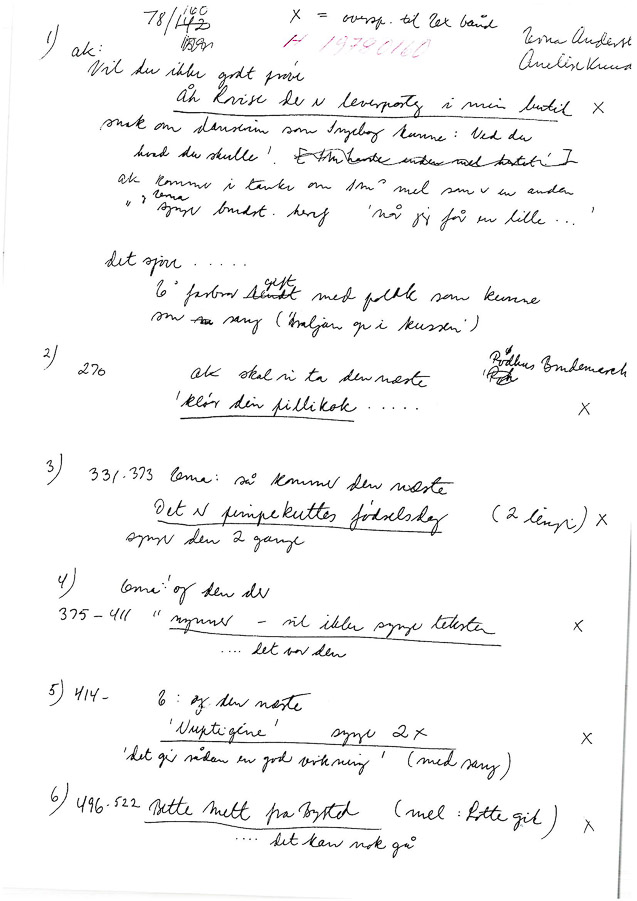 78/160
x = oversp. til Rex bånd
H 1979/160
Erna Anderst
Anelise Knud
1) ak:
Vil du ikke godt prøve
Åh Lovise der er leverpostej i min butik x
snak om danserim som Ingeborg kunne: Ved du
hvad du skulle!
ak kommer i tanke om 1m° mel som er en anden
" Erna synge budst. heref 'når jeg får en lille ...'
det sjove .....
E° farbror gift med polak som kunne
sang
2) 270 ak skal vi ta den næste
Rødhus Brudemarch
'klør din pillikok ..... x
3) 331.373 Erna: så kommer den næste
Det er pimpekuttes fødselsdag (2 længe) x
synge den 2 gange
4) Erna: og den der
375-411 " nynner - vil ikke synge teksten x
.... det var den
5) 414- E: og den næste
'Nuptigine' synge 2x x
'det gir sådan en god virkning' (med sang)
6) 496.522 Bette Mett fra Bysted (mel: Lotte gik) x
.... det kan nok gå